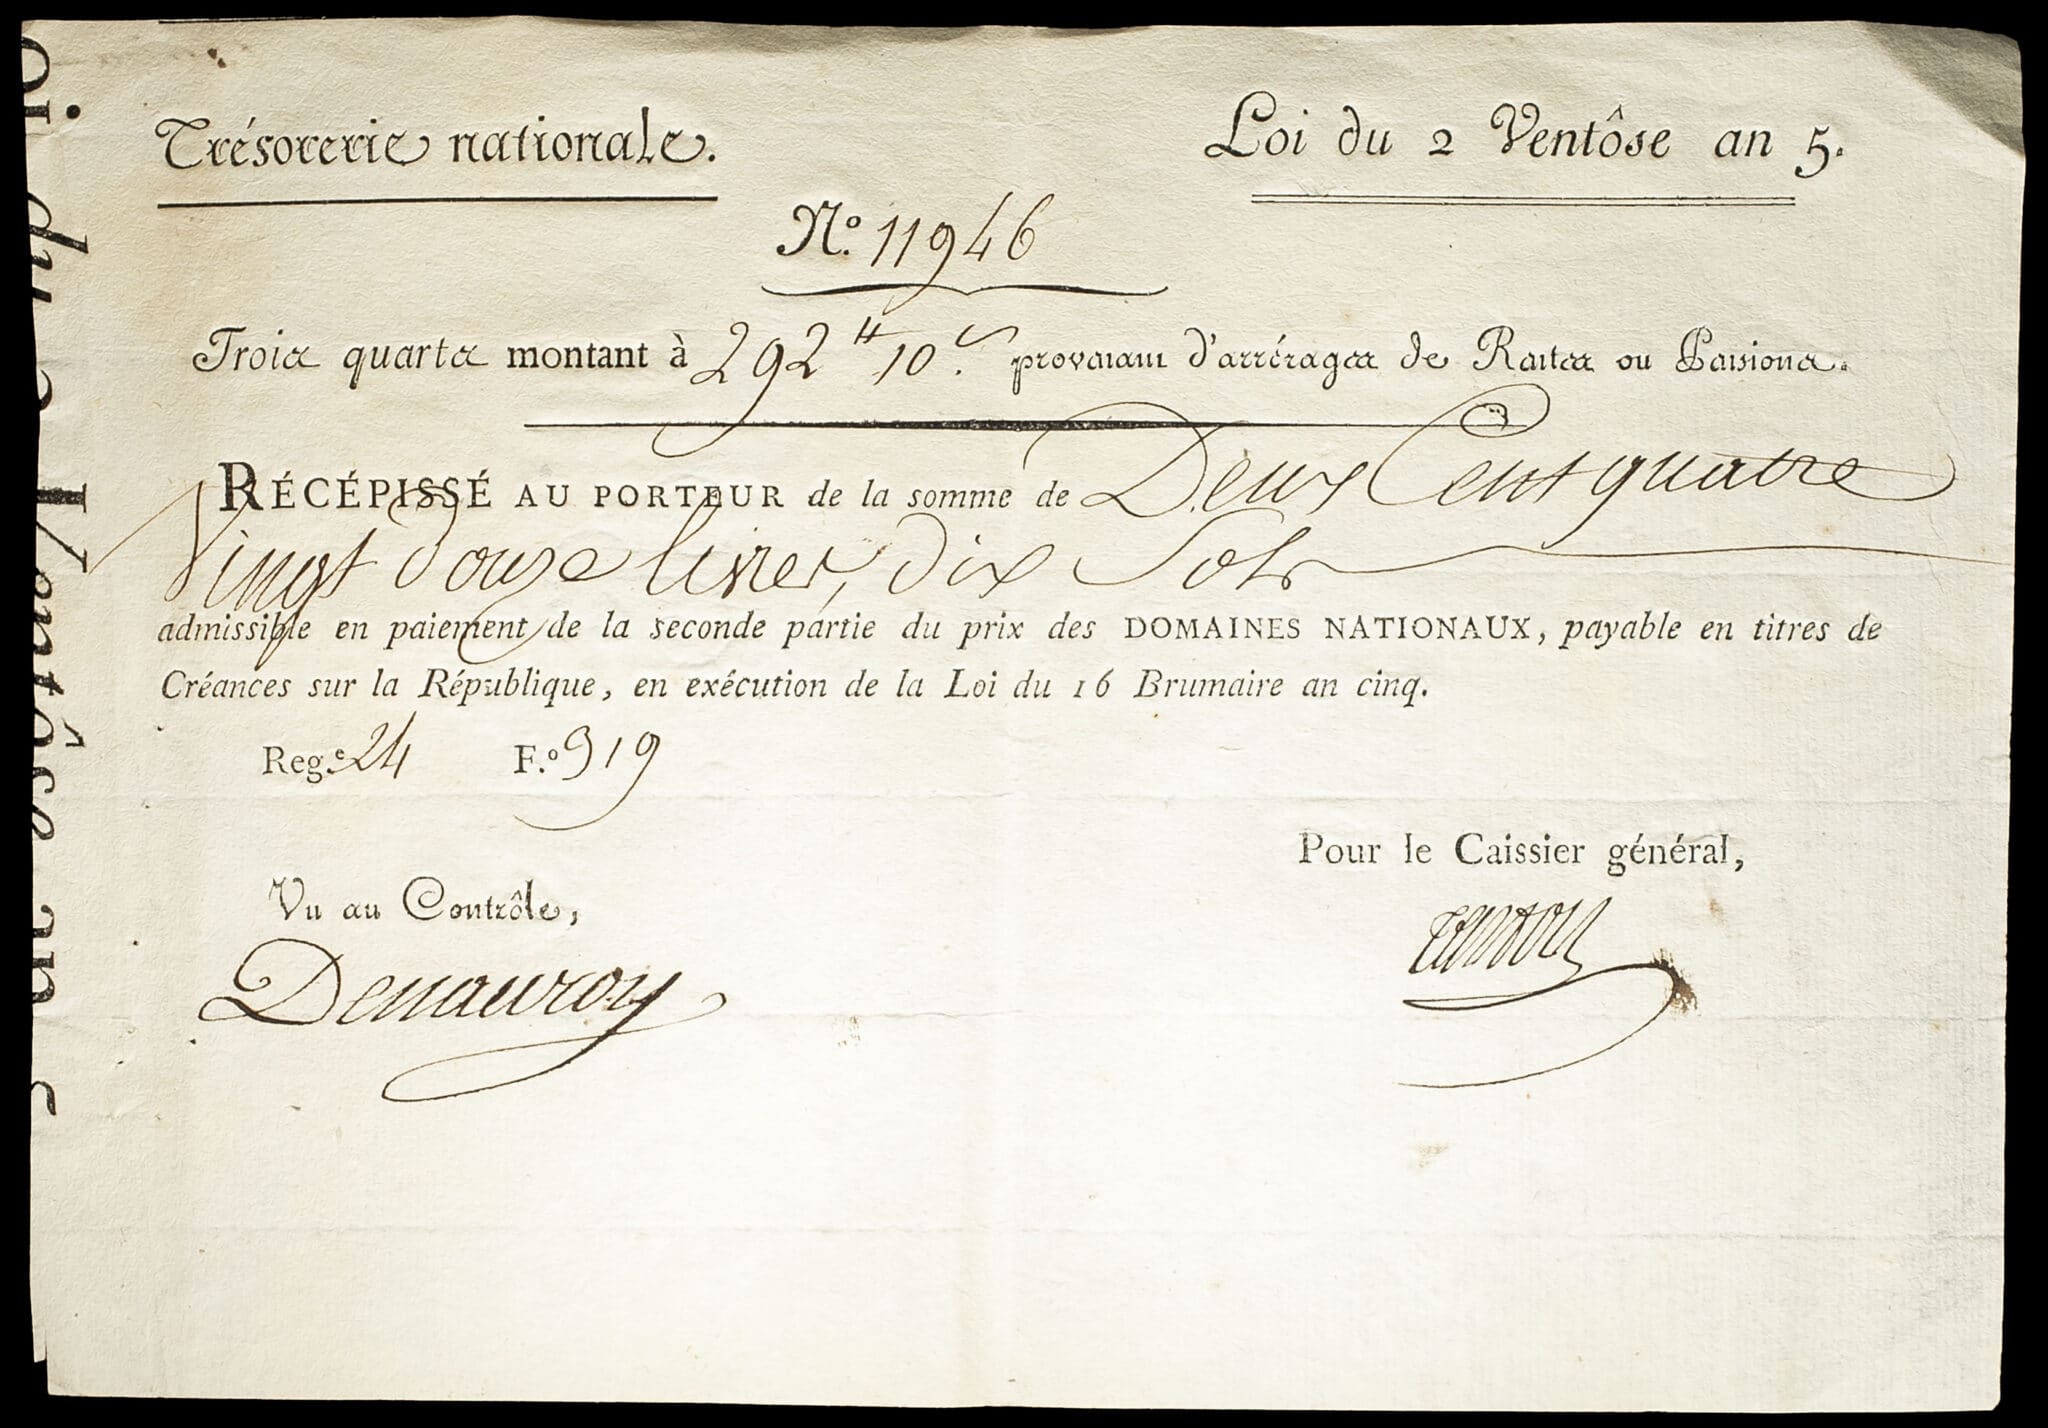 Trésorerie nationale.
Loi du 2 Ventôse an 5.
N.º 11946
Trois quarts montant à 292 ₶ 10 s. provenant d'arrérages de Rentes ou Pensions.
RÉCÉPISSÉ AU PORTEUR de la somme de Deux Cent quatre
Vingt douze livres, dix Sols
admissible en paiement de la seconde partie du prix des DOMAINES NATIONAUX, payable en titres de
Créances sur la République, en exécution de la Loi du 16 Brumaire an cinq.
Reg.e 24 F.º 919
Pour le Caissier général,
Vu au Contrôle,
Denauroy